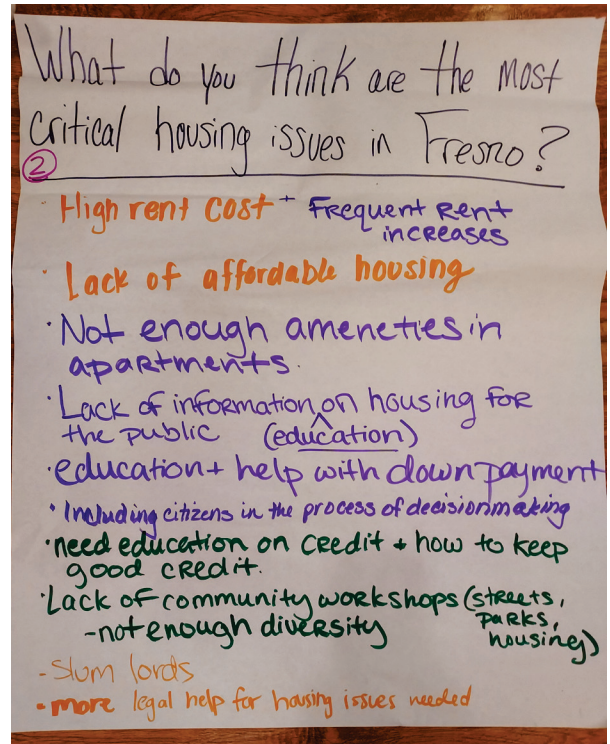 What do you think are the most
critical housing issues in Fresno?
2
· High rent cost + Frequent Rent
increases
· Lack of affordable housing
· Not enough ameneties in
apartments.
· Lack of information ^ on housing for
the public (education)
· education + help with down payment
· Including citizens in the process of decisionmaking
· need education on credit + how to keep
good credit.
· Lack of community workshops (streets,
parks,
- not enough diversity housing)
- Slum lords
- more legal help for housing issues needed